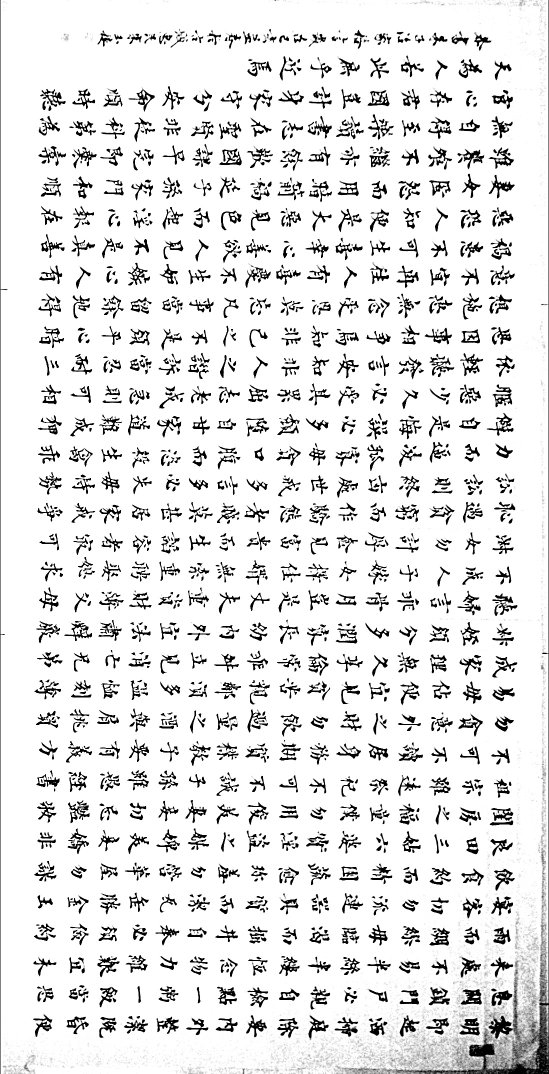 黎明即起洒掃庭除要内外整潔既昏便
息關鎖門戶必親自檢點一粥一飯當思
來處不易半絲半縷恆念物力維艱宜未
雨而綢繆毋臨渴而掘井自奉必須儉約
宴客切勿流連器具質而潔瓦缶勝金玉
飲食約而精園蔬愈珍饈勿營華屋勿謀
良田三姑六婆實淫盜之媒婢美妾嬌非
閨房之福童僕勿用俊美妻妾切忌艷妝
祖宗雖遠祭祀不可不誠子孫雖愚經書
不可不讀居身務期質樸教子要有義方
勿貪意外之財勿飲過量之酒與肩挑貿
易毋佔便宜見貧苦親鄰須多溫恤刻薄
成家理無久享倫常乖舛立見消亡兄弟
叔姪須分多潤寡長幼內外宜法肅辭嚴
聽婦言乖骨肉豈是丈夫重資財薄父母
不成人子嫁女擇佳婿毋索重聘娶媳求
淑女勿計厚奩見富貴而生諂容者最可
恥遇貧窮而作驕態者賤莫甚居家戒爭
訟訟則終凶處世戒多言多必失毋恃勢
力而凌逼孤寡毋貪口腹而恣殺生禽乖
僻自是悔誤必多頹惰自甘家道難成狎
暱惡少久必受其累屈志老成急則可相
依輕聽發言安知非人之譖訴當忍耐三
思因事相爭焉知非己之不是須平心暗
想施惠無念受恩莫忘凡事當留餘地得
意不宜再往人有喜慶不生妒嫉心人有
禍患不可生喜幸心善欲人見不是真善
惡恐人知便是大惡見色而起淫心報在
妻女匿怨而用暗箭禍延子孫家門和順
雖饔飧不繼亦有餘歡國課早完即囊橐
無自得至樂讀書志在聖賢非徒科第為
官心存君國豈計身家守分安命順時聽
天為人若此庶乎近焉
恭書朱子治家格言